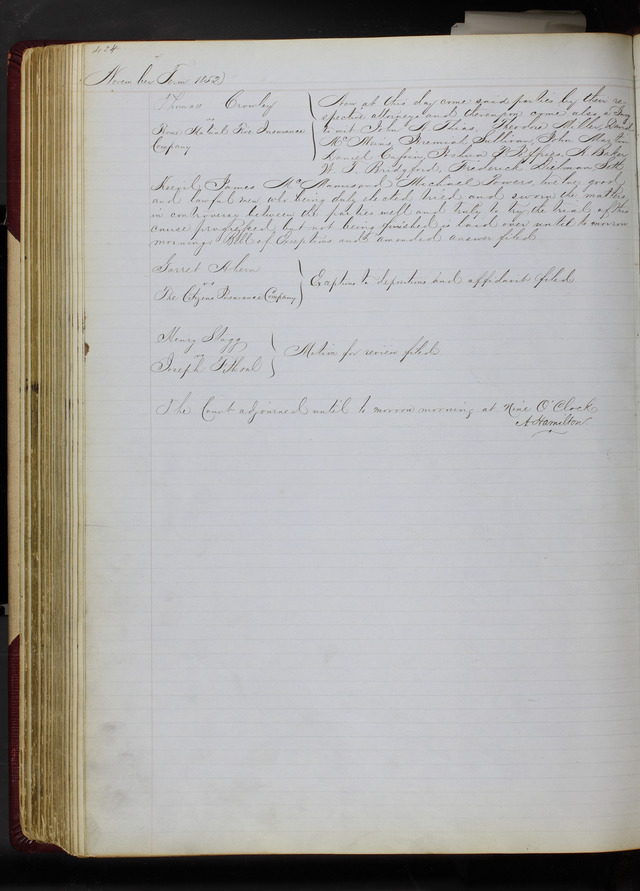 424
November Term 1852
Thomas Crowley
vs
Rome Mutual Fire Insurance
Company
Now at this day come said parties by their re-
spective attorneys and thereupon come also a Jury
to wit John Theodore David
Mc Jeremiah Sullivan, John
Daniel Joshua A
W. T. Bridgford, Frederick John
James Mc Michael Powers, twelve good
and lawful men who being duly elected tried and sworn the matters
in controversy between the parties well and truly to try, the trial of this
cause progressed, but not being finished is laid over until to morrow
morning. Bill of Exceptions and amended answer filed
Garret Ahern
vs
The Citizens Insurance Company
Exceptions to depositions and affidavit filed
Henry Stagg
vs
Joseph
Motion for review filed
The Court adjourned until to morrow morning at Nine O'Clock
A Hamilton